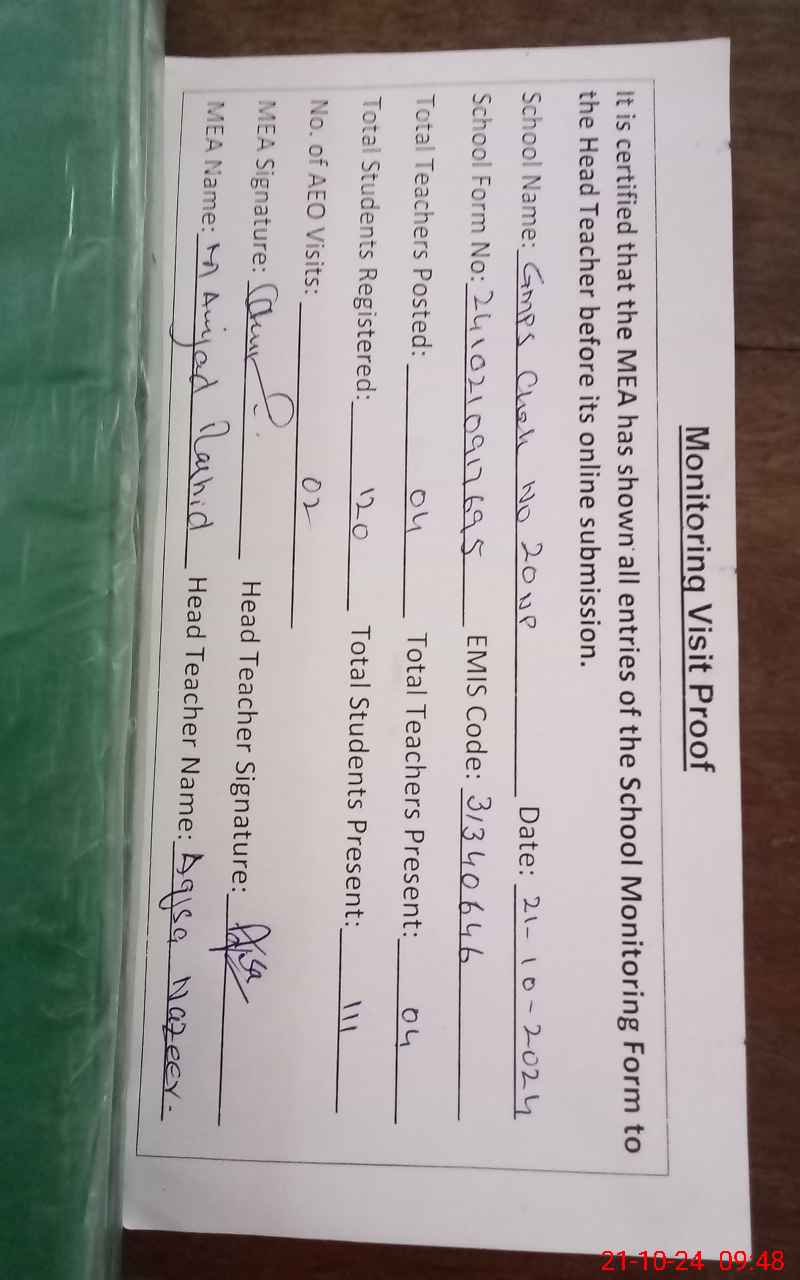 Monitoring Visit Proof
It is certified that the MEA has shown all entries of the School Monitoring Form to
the Head Teacher before its online submission.
School Name: Gmps Chak No 20 NP Date: 21-10-2024
School Form No: 2410210917695 EMIS Code: 31340646
Total Teachers Posted: 04 Total Teachers Present: 04
Total Students Registered: 120 Total Students Present: 111
No. of AEO Visits: 02
MEA Signature: Head Teacher Signature:
MEA Name: M Amjad Rashid Head Teacher Name: Aqsa Nazeer.
21-10-24 09:48